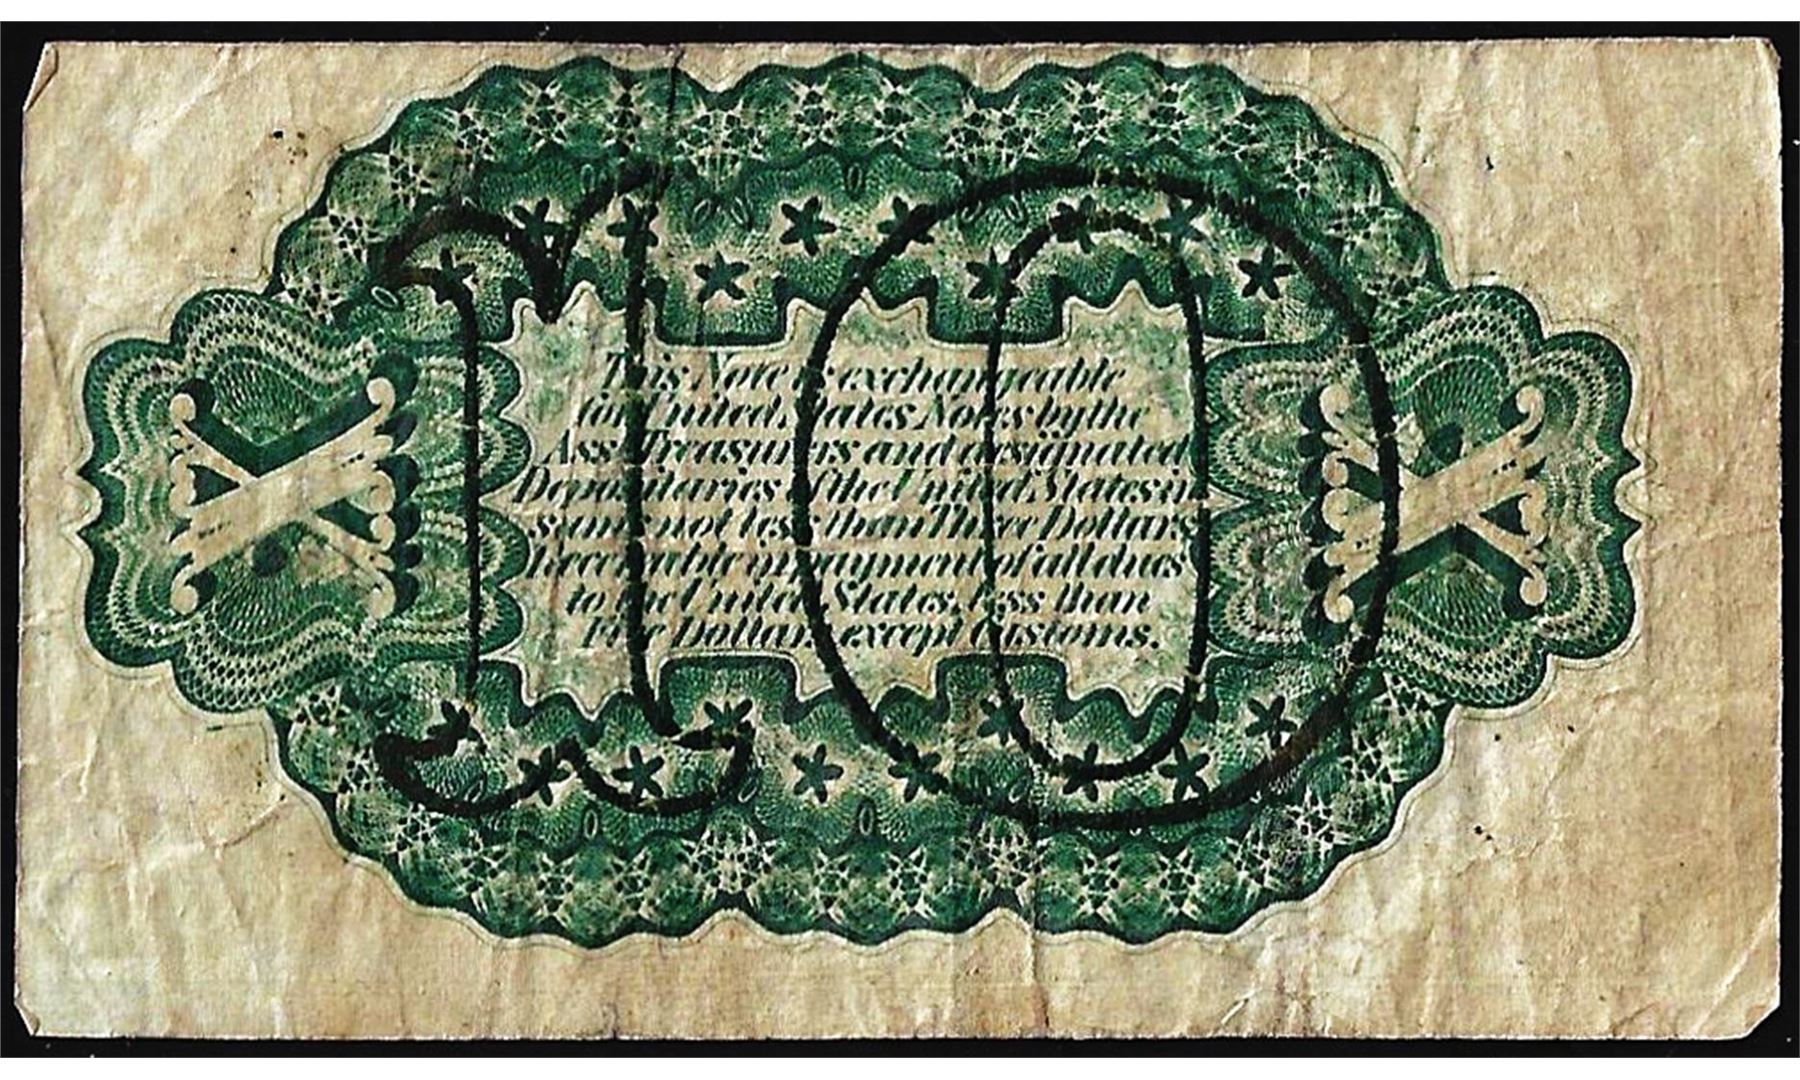 10
X X
This Note is exchangeable
for United States Notes by the
Ass't Treasurers and designated
Depositaries of the United States in
sums not less than Three Dollars
Receivable in payment of all dues
to the United States, less than
Five Dollars, except Customs.